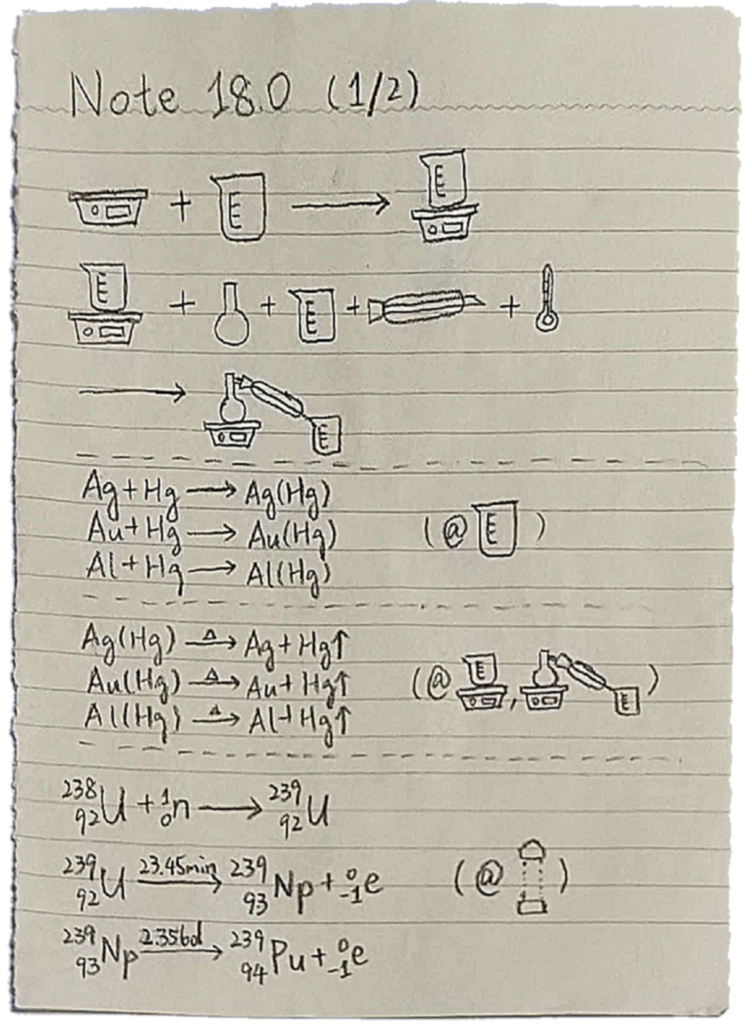 Note 18.0 (1/2)
+ →
+ + + +
→
Ag+Hg → Ag(Hg)
Au+Hg → Au(Hg) (@ )
Al+Hg → Al(Hg)
Ag(Hg) —Δ→ Ag+Hg↑
Au(Hg) —Δ→ Au+Hg↑ (@ , )
Al(Hg) —Δ→ Al+Hg↑
²³⁸₉₂U + ¹₀n → ²³⁹₉₂U
²³⁹₉₂U —23.45min→ ²³⁹₉₃Np + ⁰₋₁e (@ )
²³⁹₉₃Np —2.356d→ ²³⁹₉₄Pu + ⁰₋₁e